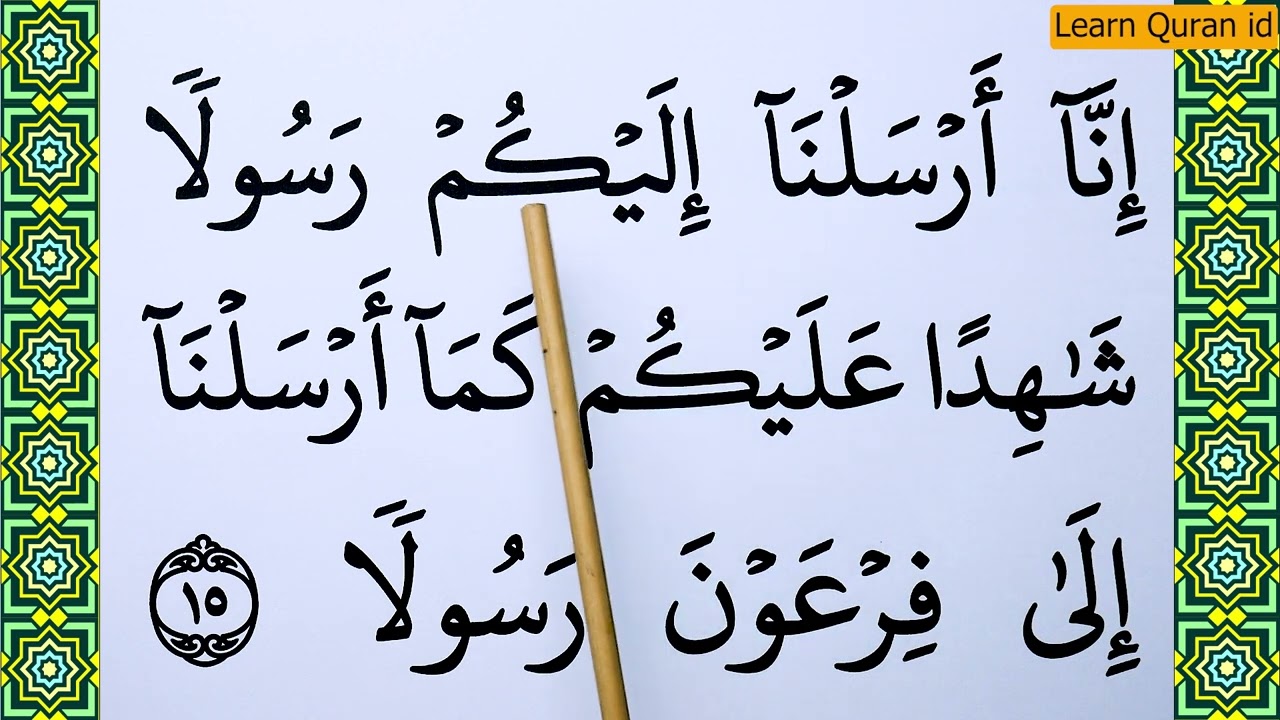 Learn Quran id
إِنَّآ أَرۡسَلۡنَآ إِلَيۡكُمۡ رَسُولٗا
شَٰهِدًا عَلَيۡكُمۡ كَمَآ أَرۡسَلۡنَآ
إِلَىٰ فِرۡعَوۡنَ رَسُولٗا ١٥